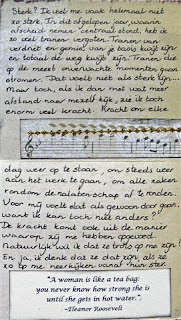 Sterk? Ik voel me vaak helemaal niet
zo sterk. In dit afgelopen jaar, waarin
afscheid nemen centraal stond, heb ik
zo veel tranen vergoten. Tranen van
verdriet en gemis, van je basis kwijt zijn
en totaal de weg kwijt zijn. Tranen, die
op de meest onverwachte momenten gaan
stromen. Dat voelt niet als sterk zijn...
Maar toch, als ik dan met wat meer
afstand naar mezelf kijk, zie ik toch
enorm veel kracht. Kracht om elke
dag weer op te staan, om steeds weer
aan het werk te gaan, om alle zaken
rondom de nalatenschap af te ronden.
Voor mij voelt dat als gewoon doorgaan,
want ik kan toch niet anders?
De kracht komt ook uit de manier
waarop zij me hebben opgevoed.
Natuurlijk wil ik dat ze trots op me zijn!
En ja, ik denk dat ze dat zijn als ze
zo op me neerkijken vanaf hun ster.
"A woman is like a tea bag:
you never know how strong she is
until she gets in hot water."
~Eleanor Roosevelt